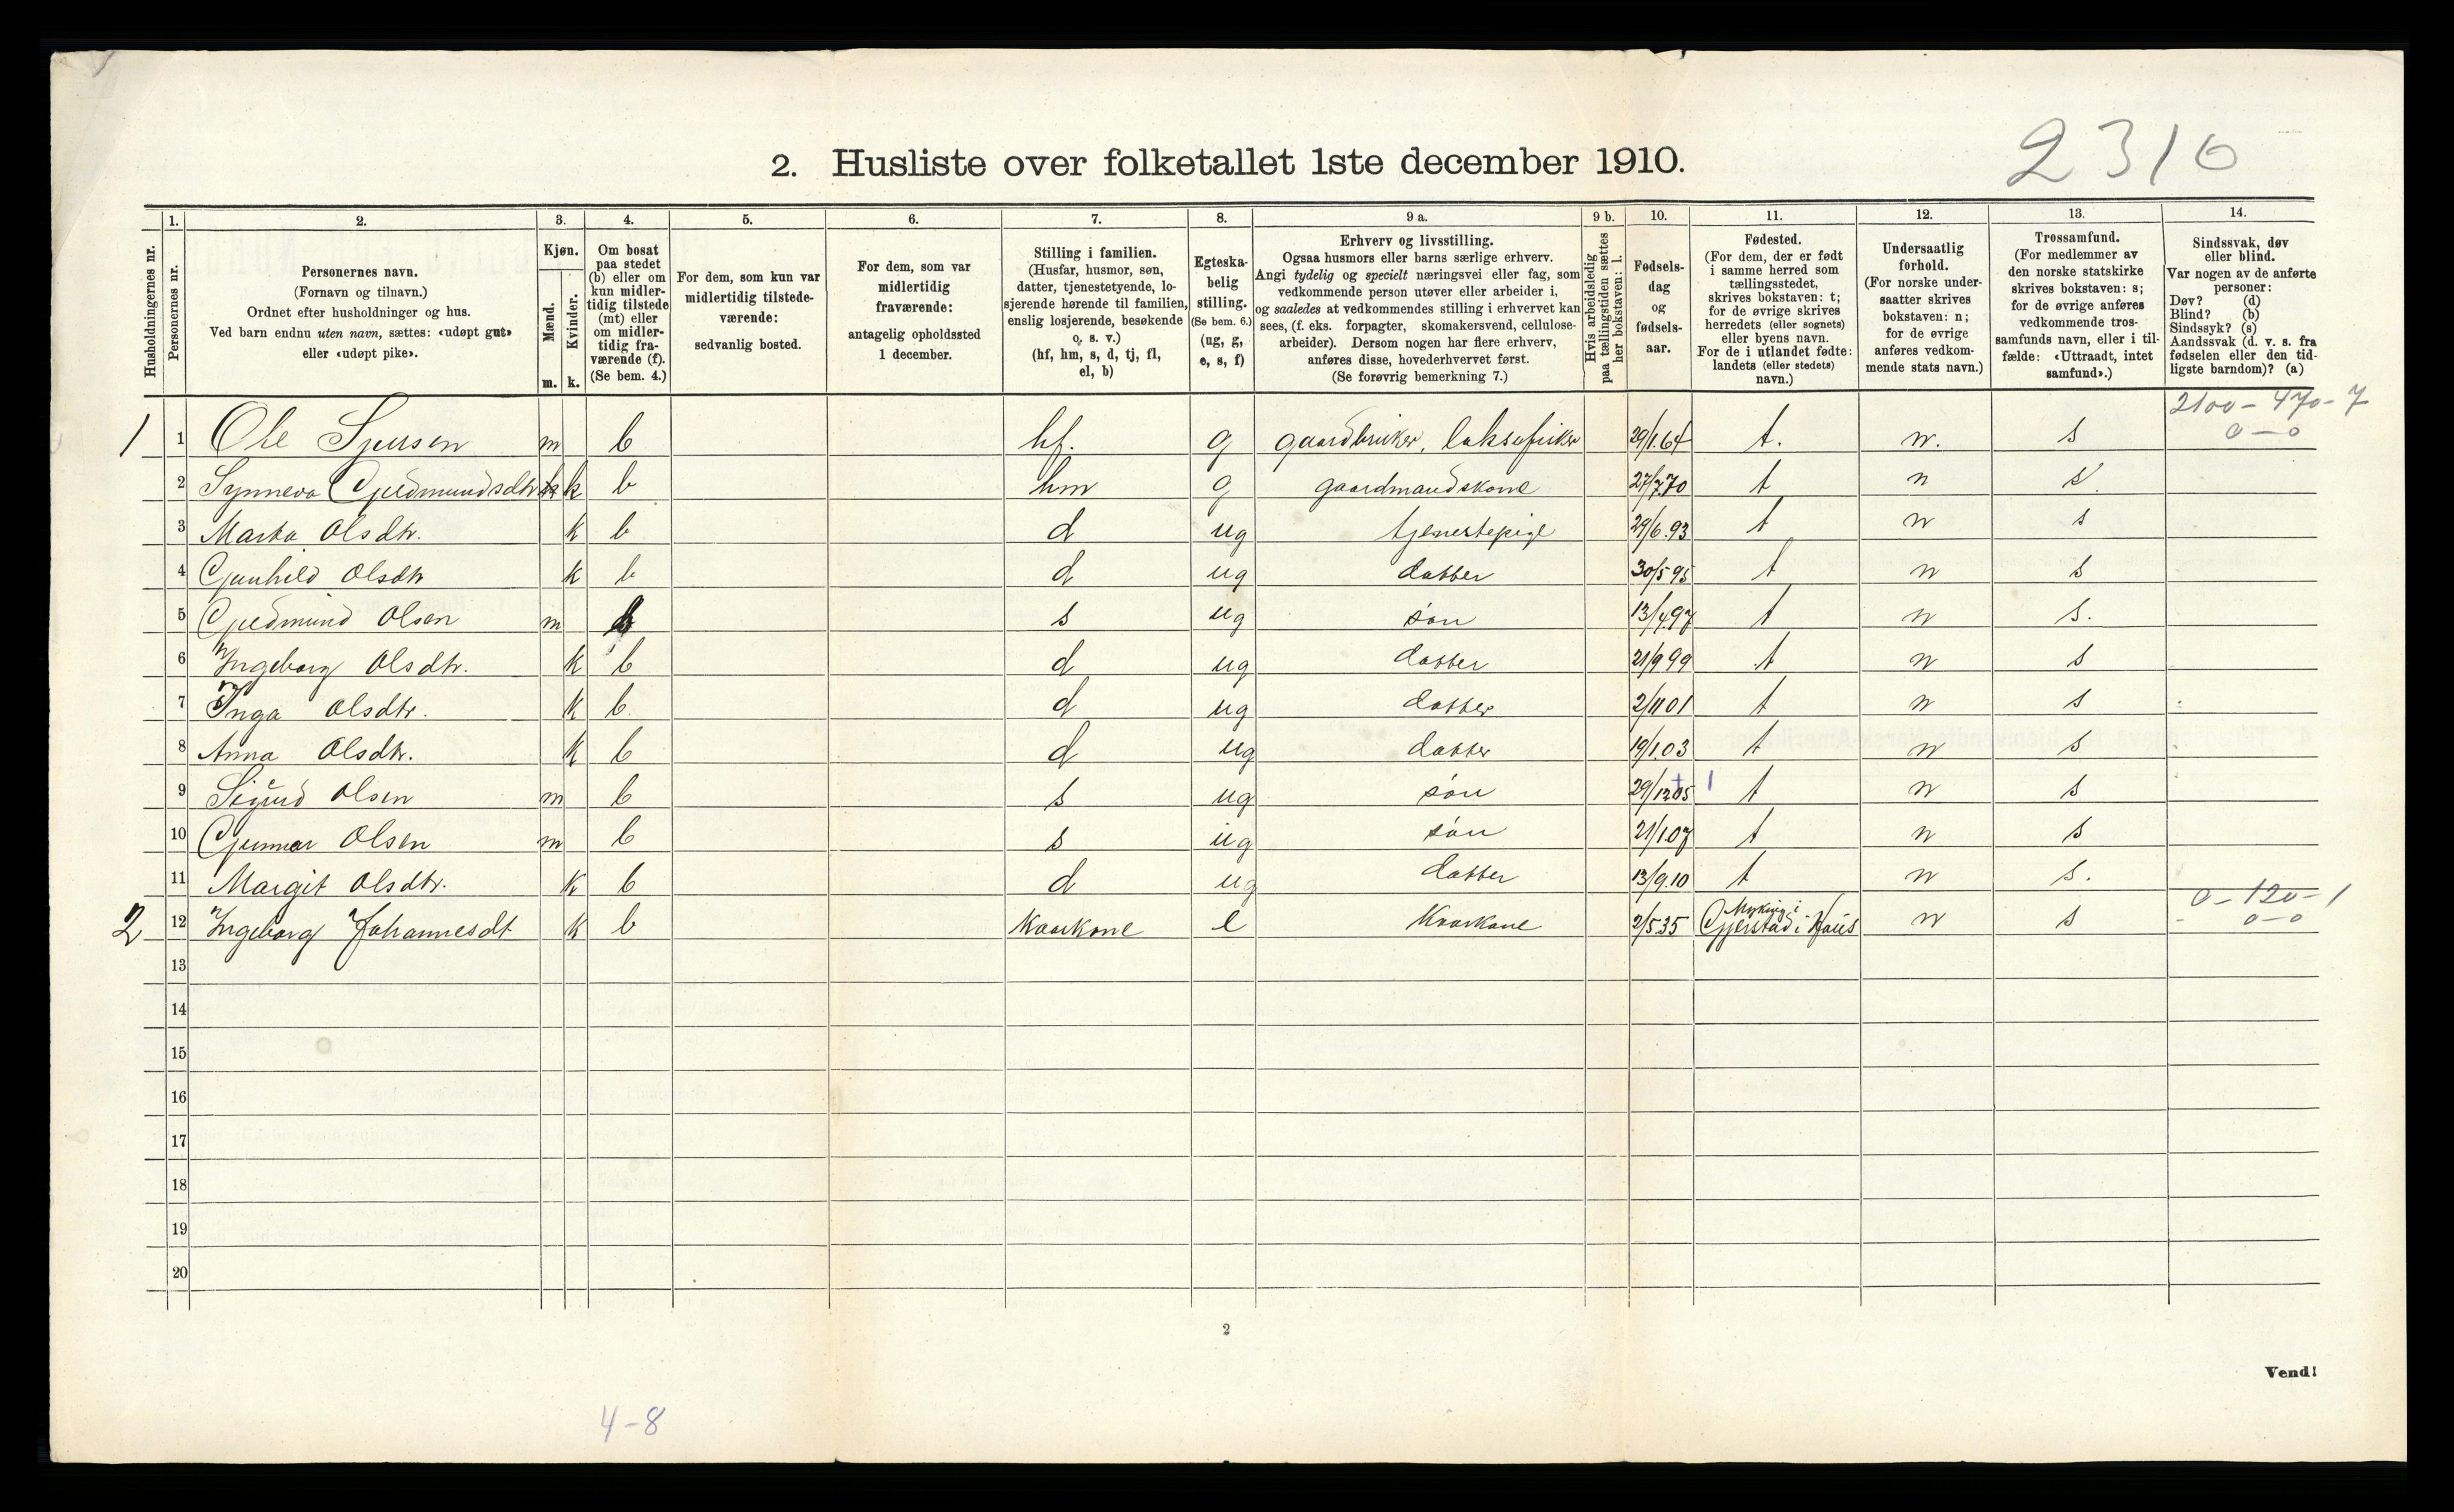 2310
2. Husliste over folketallet 1ste december 1910.
Husholdningernes nr.
1. Personernes nr.
2. Personernes navn. (Fornavn og tilnavn.) Ordnet efter husholdninger og hus. Ved barn endnu uten navn, sættes: «udøpt gut» eller «udøpt pike».
3. Kjøn. Mænd. m. Kvinder. k.
4. Om bosat paa stedet (b) eller om kun midlertidig tilstede (mt) eller om midlertidig fraværende (f). (Se bem. 4.)
5. For dem, som kun var midlertidig tilstedeværende: sedvanlig bosted.
6. For dem, som var midlertidig fraværende: antagelig opholdssted 1 december.
7. Stilling i familien. (Husfar, husmor, søn, datter, tjenestetyende, losjerende hørende til familien, enslig losjerende, besøkende o. s. v.) (hf, hm, s, d, tj, fl, el, b)
8. Egteskabelig stilling. (Se bem. 6.) (ug, g, e, s, f)
9 a. Erhverv og livsstilling. Ogsaa husmors eller barns særlige erhverv. Angi tydelig og specielt næringsvei eller fag, som vedkommende person utøver eller arbeider i, og saaledes at vedkommendes stilling i erhvervet kan sees, (f. eks. forpagter, skomakersvend, cellulosearbeider). Dersom nogen har flere erhverv, anføres disse, hovederhvervet først. (Se forøvrig bemerkning 7.)
9 b. Hvis arbeidsledig paa tællingstiden sættes her bokstaven: l.
10. Fødselsdag og fødselsaar.
11. Fødested. (For dem, der er født i samme herred som tællingsstedet, skrives bokstaven: t; for de øvrige skrives herredets (eller sognets) eller byens navn. For de i utlandet fødte: landets (eller stedets) navn.)
12. Undersaatlig forhold. (For norske undersaatter skrives bokstaven: n; for de øvrige anføres vedkommende stats navn.)
13. Trossamfund. (For medlemmer av den norske statskirke skrives bokstaven: s; for de øvrige anføres vedkommende trossamfunds navn, eller i tilfælde: «Uttraadt, intet samfund».)
14. Sindssvak, døv eller blind. Var nogen av de anførte personer: Døv? (d) Blind? (b) Sindssyk? (s) Aandssvak (d. v. s. fra fødselen eller den tidligste barndom)? (a)
2100 - 470 - 7
0 - 0
1 1 Ole Sjursen m b hf. g gaardbruker, laksefisker 29/1.64 t. n. s
2 Synneva Gudmundsdtr k b hm g gaardmandskone 27/7.70 t n s
3 Marta Olsdtr. k b d ug tjenestepige 29/6.93 t n s
4 Gunhild Olsdtr k b d ug datter 30/5 95 t n s
5 Gudmund Olsen m b s ug søn 13/4.97 t n s.
6 Ingeborg Olsdtr. k b d ug datter 21/9 99 t n s
7 Inga Olsdtr. k b. d ug datter 2/11 01 t n s
8 Anna Olsdtr. k b d ug datter 19/1.03 t n s
9 Sigurd Olsen m b s ug søn 29/12 05 t n s
10 Gunnar Olsen m b s ug søn 21/1.07 t n s
11 Margit Olsdtr. k b d ug datter 13/9.10 t n s.
0 - 120 - 1
2 12 Ingeborg Johannesdt k b Kaarkone e Kaarkone 2/5 35 Myking i Gjerstad i Haus n s 0-0
13
14
15
16
17
18
19
20
2
Vend!
4-8